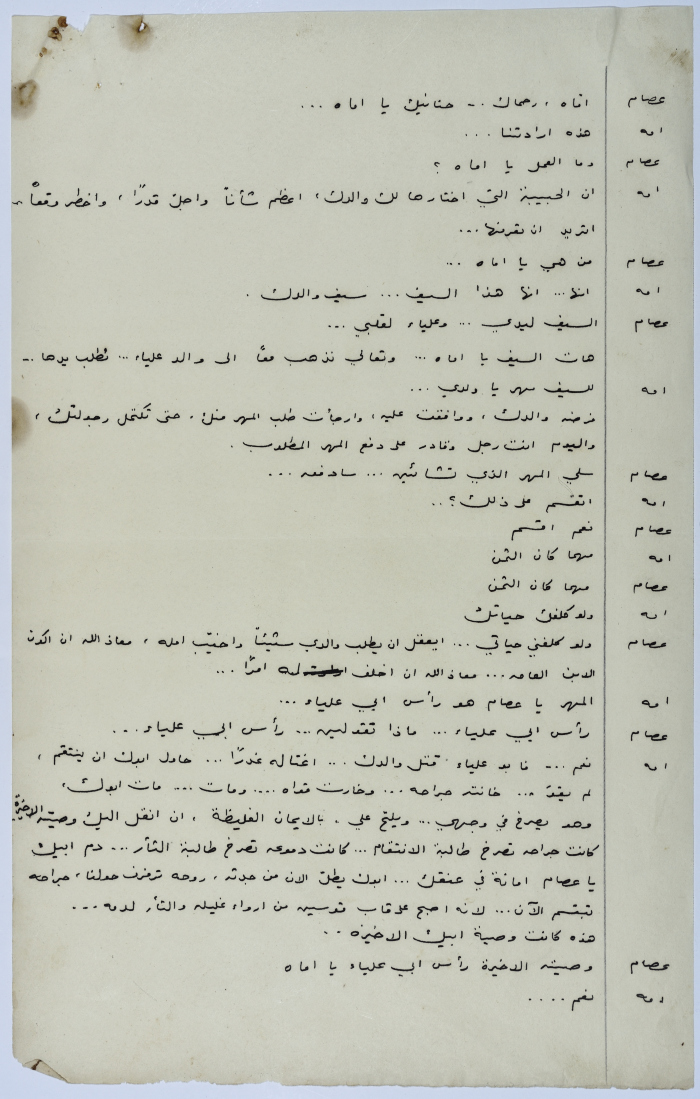 عصام اماه ، رحماك .. حنانيك يا اماه ...
امه هذه ارادتنا ...
عصام وما العمل يا اماه ؟
امه ان الحبيبة التي اختارها لك والدك ، اعظم شأناً واجلّ قدرًا ، واخطر وقعاً ..
اتريد ان تعرفها ...
عصام من هي يا اماه ...
امه انها ... انها هذا السيف ... سيف والدك .
عصام السيف ليدي ... وعلياء لقلبي ...
هات السيف يا اماه ... وتعالي نذهب معاً الى والد علياء ... نطلب يدها ..
امه للسيف مهر يا ولدي ...
فرضه والدك ، ووافقت عليه ، وارجأت طلب المهر منك ، حتى تكتمل رجولتك ،
واليوم انت رجل وقادر على دفع المهر المطلوب .
عصام سلي المهر الذي تشائين ... سادفعه ...
امه اتقسم على ذلك ؟ ..
عصام نعم اقسم
امه مهما كان الثمن
عصام مهما كان الثمن
امه ولو كلفك حياتك
عصام ولو كلفني حياتي ... ايعقل ان يطلب والدي شيئاً واخيّب امله ، معاذ الله ان اكون
الابن العاق ... معاذ الله ان اخلف له امرًا ...
امه المهر يا عصام هو رأس ابي علياء ...
عصام رأس ابي علياء ... ماذا تقولين ... رأس ابي علياء ...
امه نعم ... فابو علياء قتل والدك ... اغتاله غدرًا ... حاول ابوك ان ينتقم ،
لم يقوَ ... خانته جراحه ... وخارت قواه ... ومات ... مات ابوك ،
وهو يصرخ في وجهي ... ويلحّ علي ، بالايمان الغليظة ، ان انقل اليك وصيته الاخيرة
كانت جراحه تصرخ طالبة الانتقام ... كانت دموعه تصرخ طالبة الثأر ... دم ابيك
يا عصام امانة في عنقك ... ابوك يطلّ الان من جدثه ، روحه ترفرف حولنا ، جراحه
تبتسم الآن ... لانه اصبح على قاب قوسين من ارواء غليله والثأر لدمه ...
هذه كانت وصية ابيك الاخيرة ..
عصام وصيته الاخيرة رأس ابي علياء يا اماه
امه نعم ....